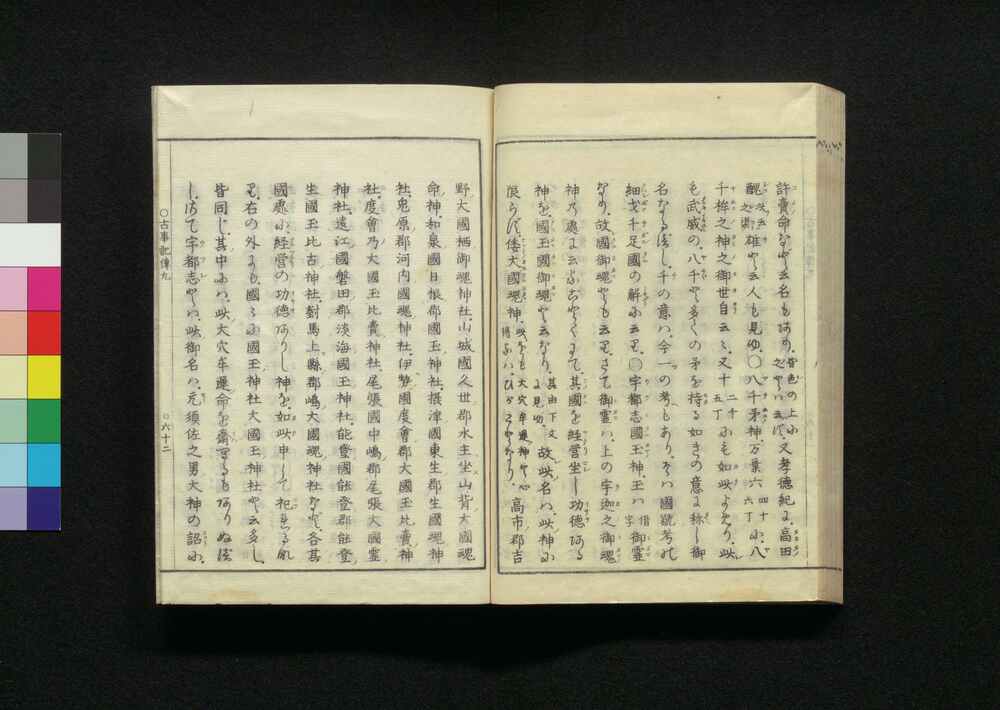 許賣命など云名もあり、皆色の上に之といはず、又孝德紀に、高田
醜之渠雄と云人も見ゆ、〇八千矛神、万葉六四十六丁に、八
千桙之神之御世自云々、又十二十五丁にも如此よめり、此
も武威の、八千と多くの矛を持る如きの意に稱し御
名なるべし、千の意は、今一の考もあり、そは國號考の
細戈千足國の解に云り、〇宇都志國玉神、玉は借字御靈
なり、故國御魂とも云り、さて御靈は、上の宇迦之御魂
神の處に云ふごとくにて、其國を經營坐し功德ある
神を、國玉國御魂と云なり、其由下文に見ゆ、故此名は、此神に
限らず、倭大國魂神、此をも大穴牟遲神と心得るは、ひがことなり、高市郡吉
野大國栖御魂神社、山城國久世郡水主坐山背大國魂
命神、和泉國日根郡國玉神社、攝津國東生郡生國魂神
社、兎原郡河内國魂神社、伊勢國度會郡大國玉比賣神
社、度會乃大國玉比賣神社、尾張國中嶋郡尾張大國靈
神社、遠江國磐田郡淡海國玉神社、能登國能登郡能登
生國玉比古神社、對馬上縣郡嶋大國魂神社など、各其
國處に經營の功德ありし神を、如此申して祀れる
り、右の外にも國々に國玉神社大國玉神社と云多し、
皆同じ、其中には、此大穴牟遲命を齋るもありぬべ
し、さて宇都志といふ此御名は、元須佐之男大神の詔に、
〇古事記傳九
〇六十二